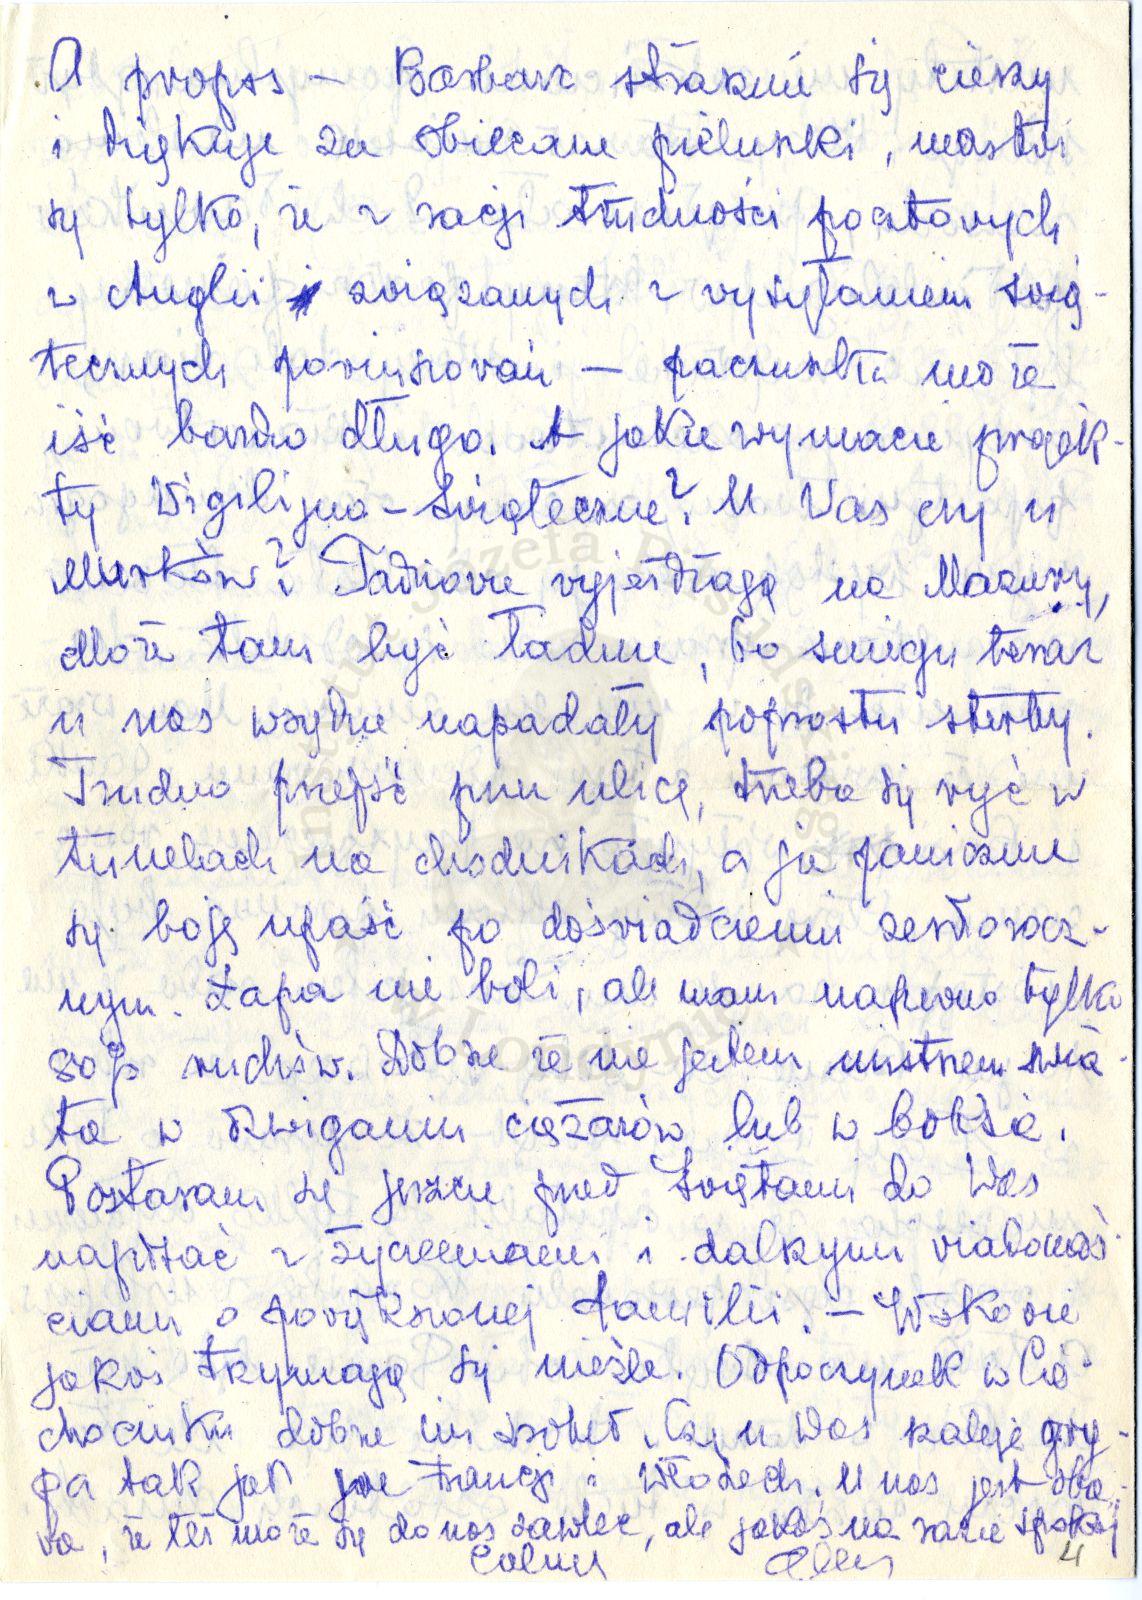 A propos – Barbara strasznie się cieszy
i dziękuje za obiecane pieluszki, martwi
się tylko, że z racji trudności pocztowych
w Anglii związanych z wysyłaniem świą-
tecznych powinszowań – paczuszka może
iść bardzo długo. A jakie wy macie projek-
ty Wigilijno-świąteczne? U Was czy u
Murków? Tadziowie wyjeżdżają na Mazury,
Może tam być ładnie, bo śniegu teraz
u nas wszędzie napadały poprostu sterty.
Trudno przejść przez ulicę, trzeba się ryć w
tunelach na chodnikach, a ja panicznie
się boję upaść po doświadczeniu zeszłorocz-
nym. Łapa nie boli, ale mam napewno tylko
80% ruchów. Dobrze że nie jestem mistrzem świa-
ta w dźwiganiu ciężarów lub w boksie.
Postaram się jeszcze przed Świętami do Was
napisać z życzeniami i dalszymi wiadomoś-
ciami o powiększonej familii. –
jakoś trzymają się nieźle. Odpoczynek w Cie-
chocinku dobrze im zrobił. Czy u Was szaleje gry-
pa tak jak we Francji i Włoszech. U nas jest oba-
wa, że też może się do nas zawlec, ale jakoś na razie spokój
Całuję
4
Instytut Józefa Piłsudskiego
w Londynie